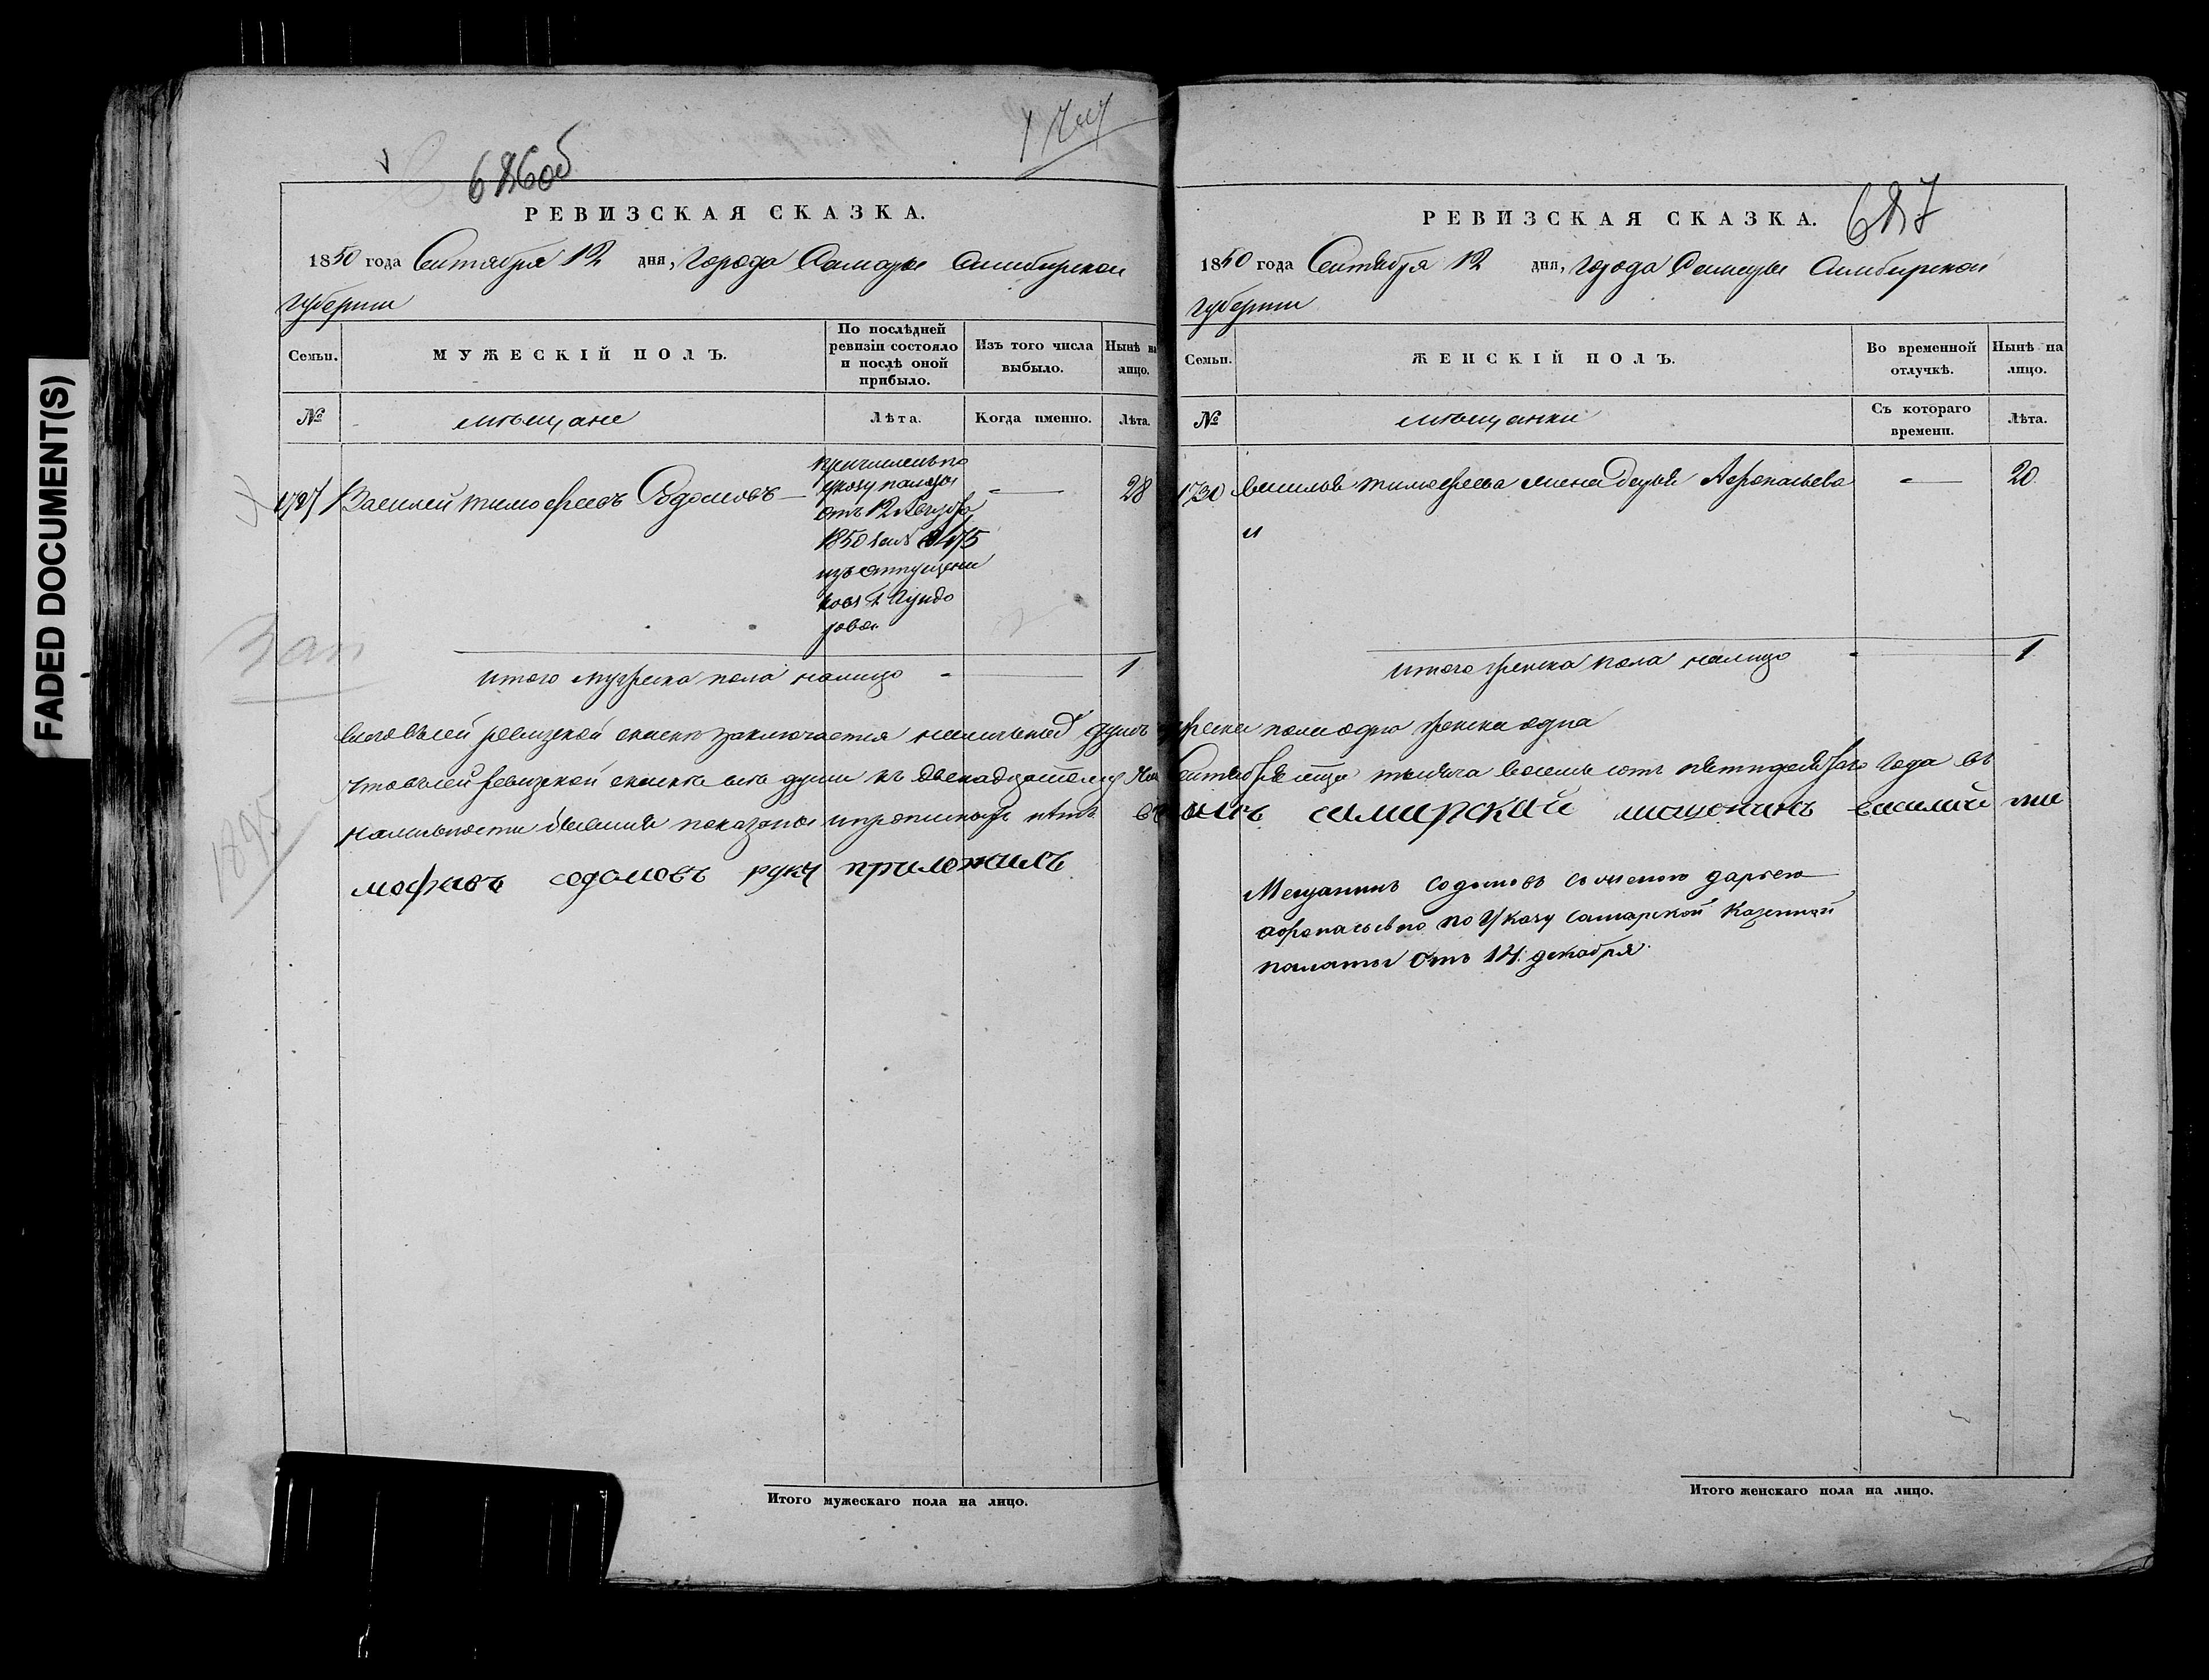 FADED DOCUMENT(S)
686об
РЕВИЗСКАЯ СКАЗКА.
1850 года Сентября 12 дня, Города Самары Симбирской
губернии
Семьи.
МУЖЕСКІЙ ПОЛЪ.
По послѣдней
ревизіи состояло
и послѣ оной
прибыло.
Изъ того числа
выбыло.
Нынѣ на
лицо.
№
мѣщане
Лѣта.
Когда именно.
Лѣта.
Василей тимофеевъ Содомовъ
причисленъ по
указу палаты
отъ 12 Августа
1850
изъ отпущени
ковъ
28
Итого мужеска пола налицо 1
ревизской скаске заключается душъ
ревизской скаске все души къ двенадцатому
наличности показаны и прописных нетъ
мофеевъ содомовъ руку приложилъ
Зап
1895
687
РЕВИЗСКАЯ СКАЗКА.
1850 года Сентября 12 дня, Города Самары Симбирской
губернии
Семьи.
ЖЕНСКІЙ ПОЛЪ.
Во временной
отлучкѣ.
Нынѣ на
лицо.
№
мѣщанки
Съ котораго
времени.
Лѣта.
1730 Василья тимофеева жена Дарья Афонасьева 20
Итого женска пола налицо 1
пола одна женска одна
Сентября тысяча восемь сотъ пятидесятаго года въ
самарскай мещенинъ василий ти
Мещанинъ Содомовъ съ женою дарьею
афонасьевою по Указу Самарской Казенной
палаты отъ 14. декабря
Итого мужескаго пола на лицо.
Итого женскаго пола на лицо.